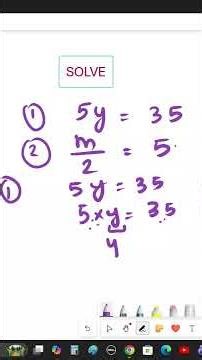 SOLVE
① 5y = 35
② m/2 = 5
① 5y = 35
5 × y = 35
y